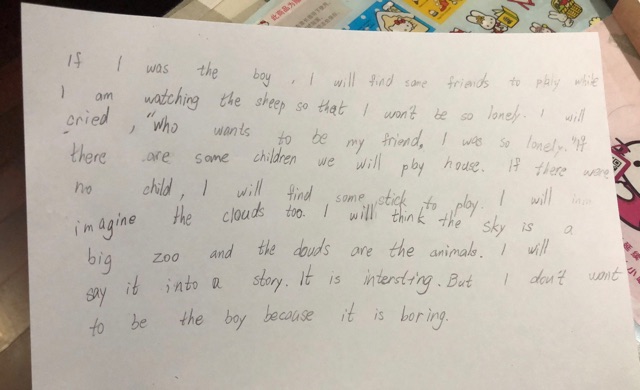 If I was the boy, I will find some friends to play while
I am watching the sheep so that I won't be so lonely. I will
cried, "Who wants to be my friend, I was so lonely." If
there are some children we will play house. If there were
no child, I will find some stick to play. I will
imagine the clouds too. I will think the sky is a
big zoo and the clouds are the animals. I will
say it into a story. It is intersting. But I don't want
to be the boy because it is boring.